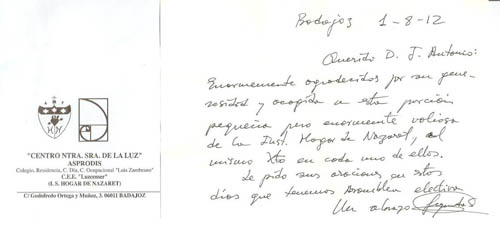 "CENTRO NTRA. SRA. DE LA LUZ"
ASPRODIS
Colegio, Residencia, C. Día, C. Ocupacional "Luis Zambrano"
C.E.E. "Luzcenser"
(I. S. HOGAR DE NAZARET)
C/ Godofredo Ortega y Muñoz, 3. 06011 BADAJOZ
Badajoz 1-8-12
Querido D. J. Antonio:
Enormemente agradecidos por su gene-
rosidad y acogida a esta porción
pequeña pero enormente valiosa
de la Inst. Hogar de Nazaret, al
mismo Xto en cada uno de ellos.
Le pido sus oraciones en estos
días que tenemos Asamblea electiva
Un abrazo